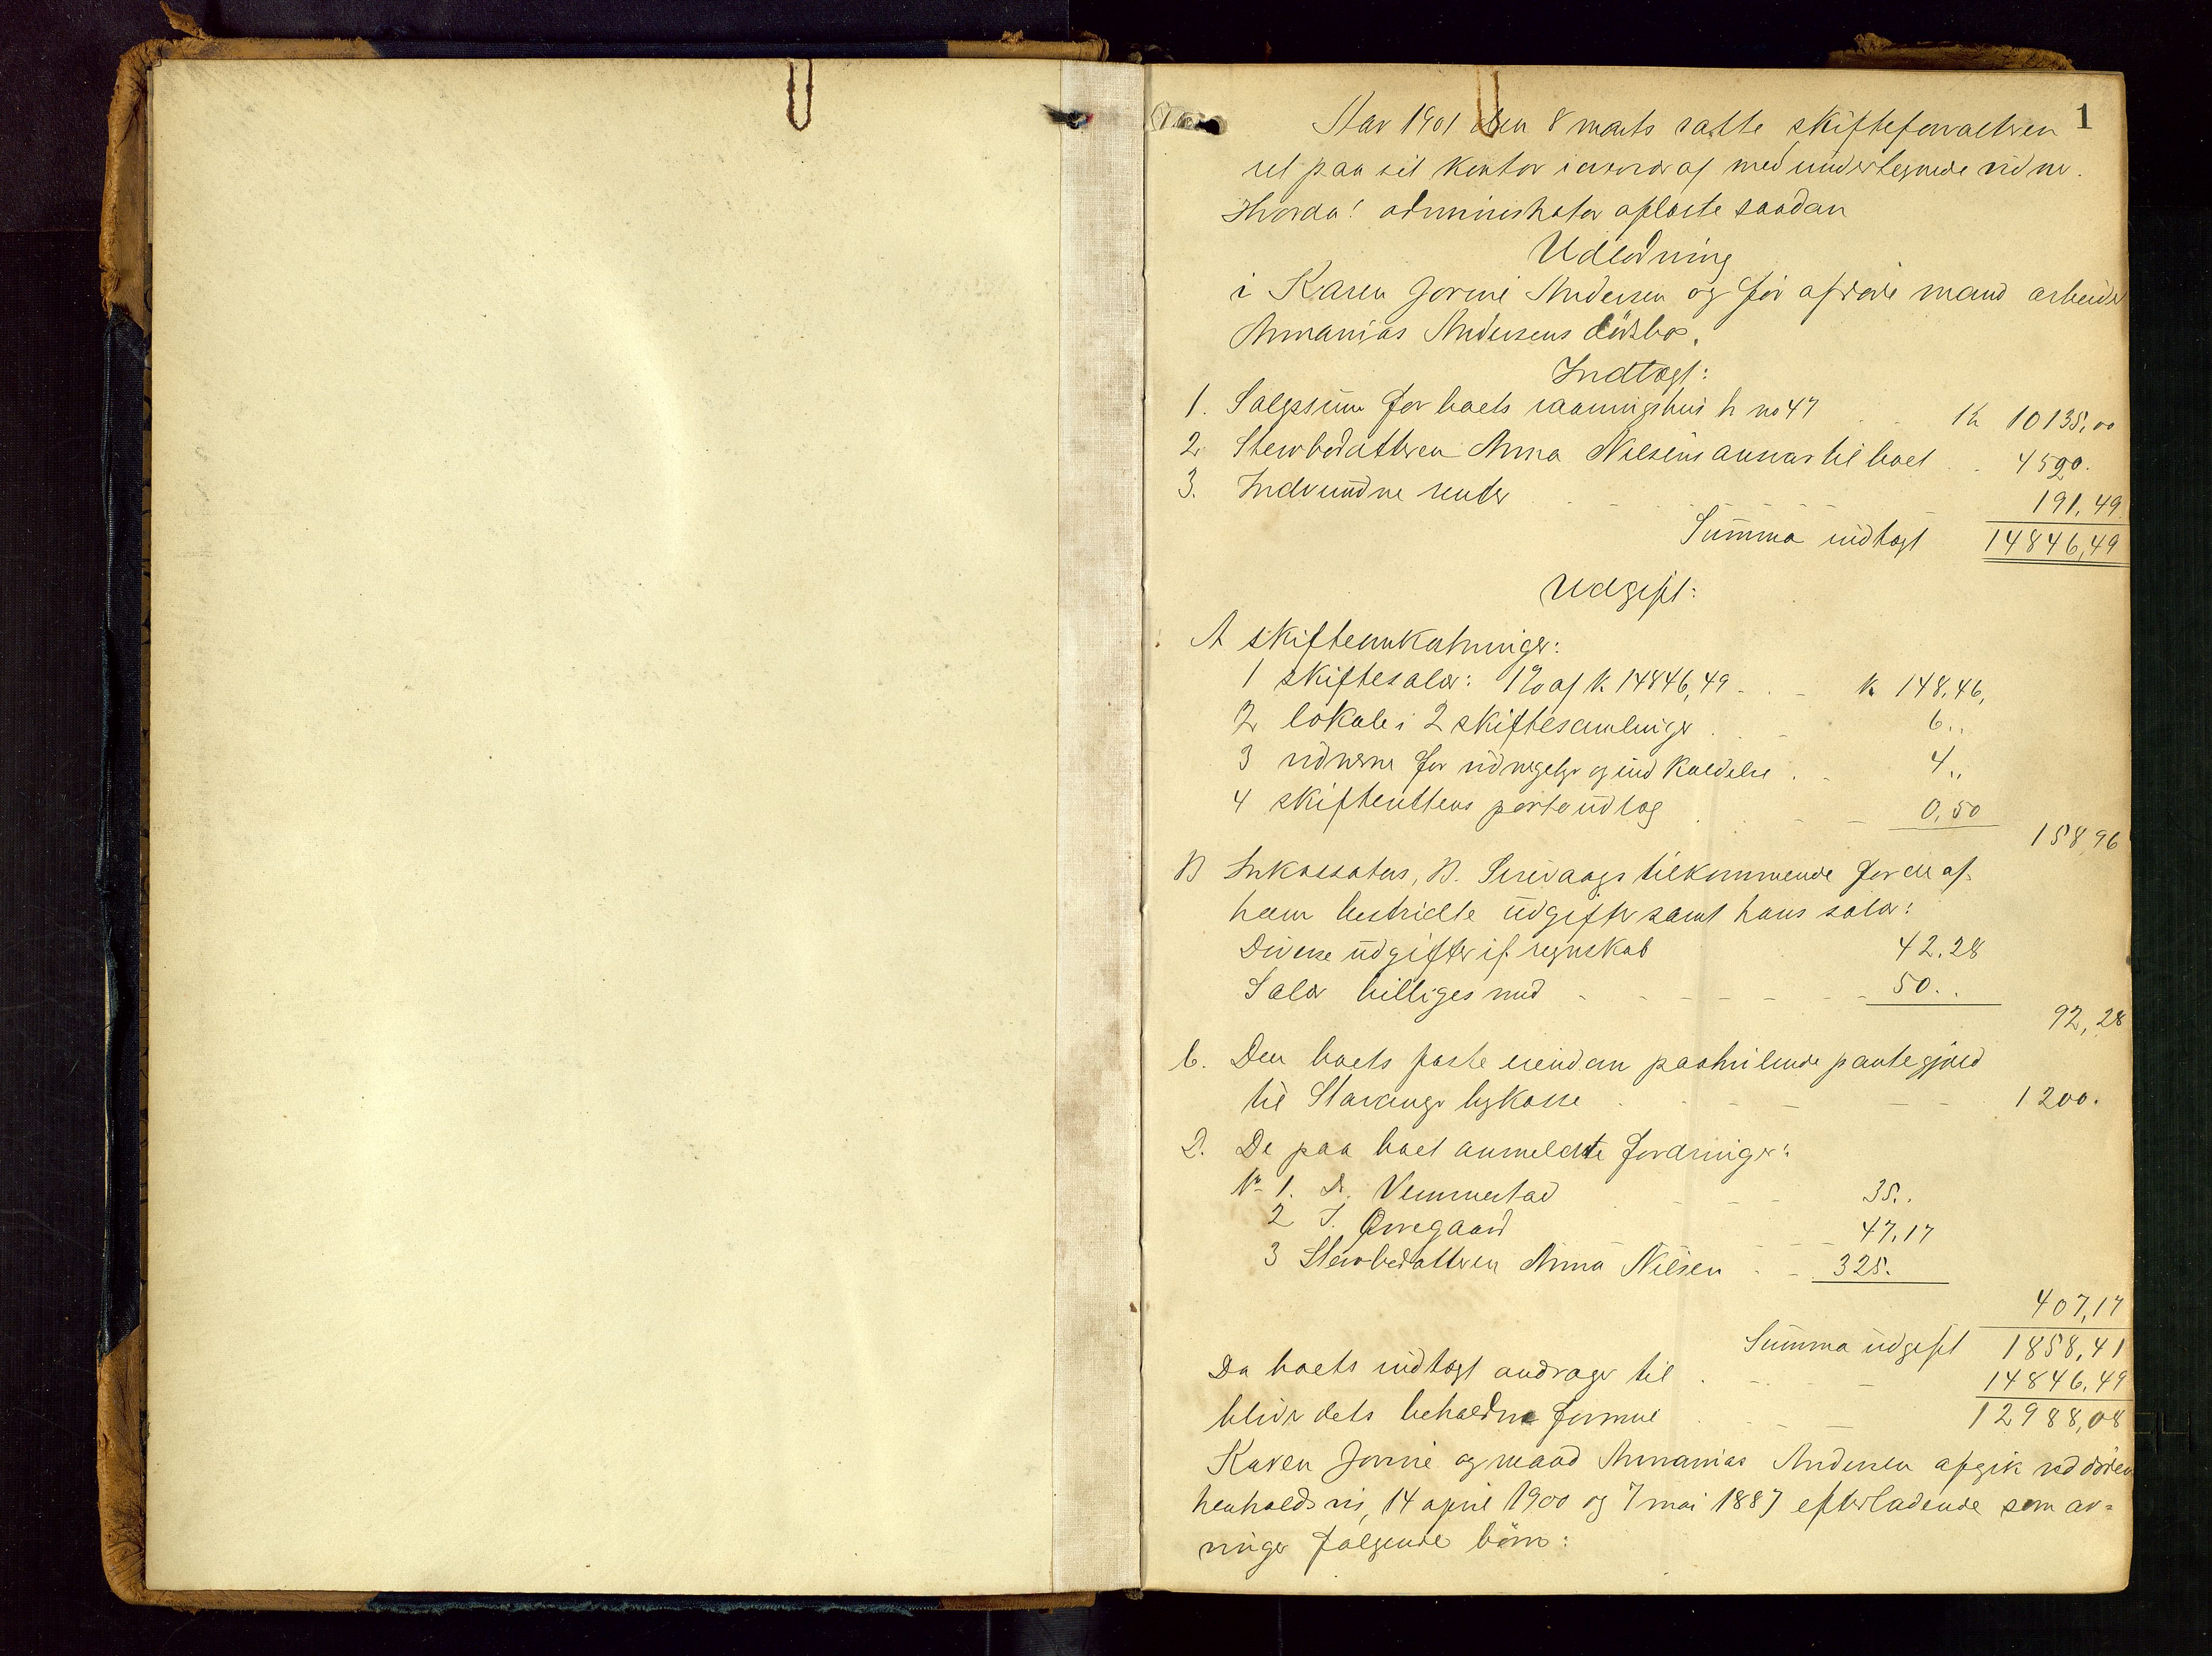 1
Aar 1901 den 8 marts satte skifteforvalteren
ret paa sit kontor i overvær af medundertegnede vidner.
Hvorda! administrator aflæste saadan
Udlodning
i Karen Jorine Andersen og før afdøde mand arbeider
Annanias Andersens dödsbo.
Indtægt:
1. Salgssum for boets vaaningshus h no 47 Kr 10135,00
2 Stervbodatteren Anna Nielsens ansvar til boet 4520.
3. Indvundne renter 191,49
Summa indtægt 14846,49
Udgift:
A skifteomkostninger:
1 skiftesalær: 1% af kr. 14846,49 kr 148,46,
2 lokale i 2 skiftesamlinger 6..
3 vidnerne for vidnegebyr og indkaldelse 4..
4 skifterettens portoudlæg 0,50
158,96
B Inkassators, B. Sirevaags tilkommende for de af
ham bestridte udgifter samt hans salær:
Diverse udgifter if. regnskab 42.28
Salær billiges med 50..
92,28
C. Den boets faste eiendom paahvilende pantegjæld
til Stavanger bykasse 1200.
D. De paa boet anmeldte fordringer:
No 1. D. Vemmestad 35..
2 T. Orregaard 47,17
3 Stervbodatteren Anna Nielsen 325.
407,17
Summa udgift 1858,41
Da boets indtægt andrager til 14846,49
bliver dets beholdne formue 12988,08
Karen Jorine og mand Annanias Andersen afgik ved döden
henholdsvis 14 april 1900 og 7 mai 1887 efterladende som ar=
vinger følgende börn: